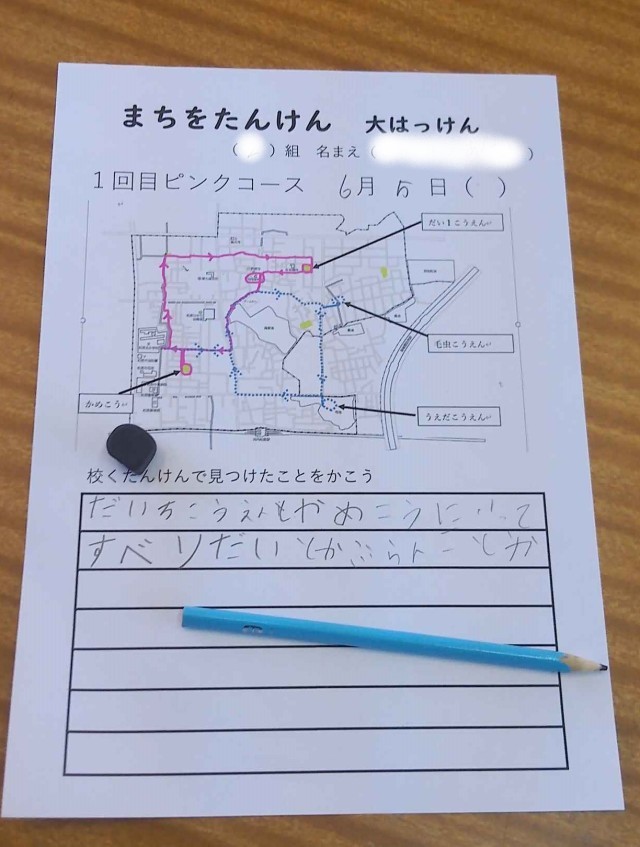 まちをたんけん 大はっけん
( )組 名まえ ( )
1回目ピンクコース 6月5日( )
だい1こうえん
毛虫こうえん
かめこう
うえだこうえん
校くたんけんで見つけたことをかこう
だいちこうえんもかめこうにいって
すべりだいとかぶらんことか